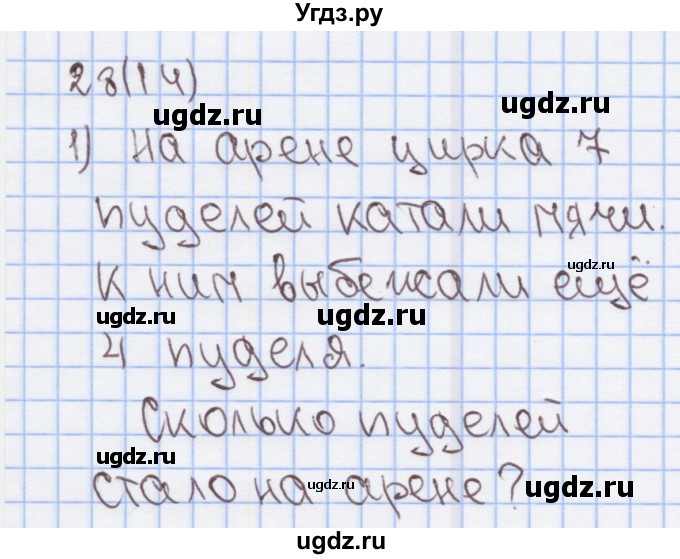 Угдз.ру
28(14)
ugdz.ru ugdz.ru
1) На арене цирка 7
пуделей катали мячи.
К ним выбежали ещё
ugdz.ru
ugdz.ru ugdz.ru
4 пуделя.
Сколько пуделей
ugdz.ru
стало на арене?
ugdz.ru ugdz.ru
ugdz.ru